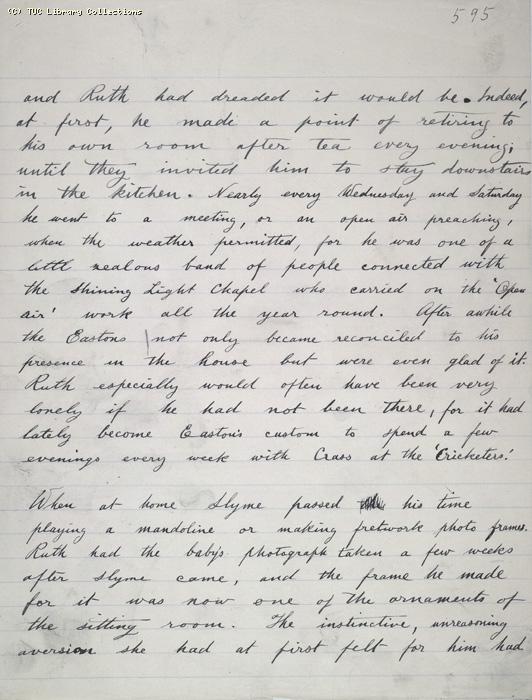 (C) TUC Library Collections
595
and Ruth had dreaded it would be. Indeed,
at first, he made a point of retiring to
his own room after tea every evening,
until they invited him to stay downstairs
in the kitchen. Nearly every Wednesday and Saturday
he went to a meeting, or an open air preaching,
when the weather permitted, for he was one of a
little zealous band of people connected with
the Shining Light Chapel who carried on the 'Open
air' work all the year round. After awhile
the Eastons not only became reconciled to his
presence in the house but were even glad of it.
Ruth especially would often have been very
lonely if he had not been there, for it had
lately become Easton's custom to spend a few
evenings every week with Crass at the 'Cricketers.'
When at home Slyme passed his time
playing a mandoline or making fretwork photo frames.
Ruth had the baby's photograph taken a few weeks
after Slyme came, and the frame he made
for it was now one of the ornaments of
the sitting room. The instinctive, unreasoning
aversion she had at first felt for him had